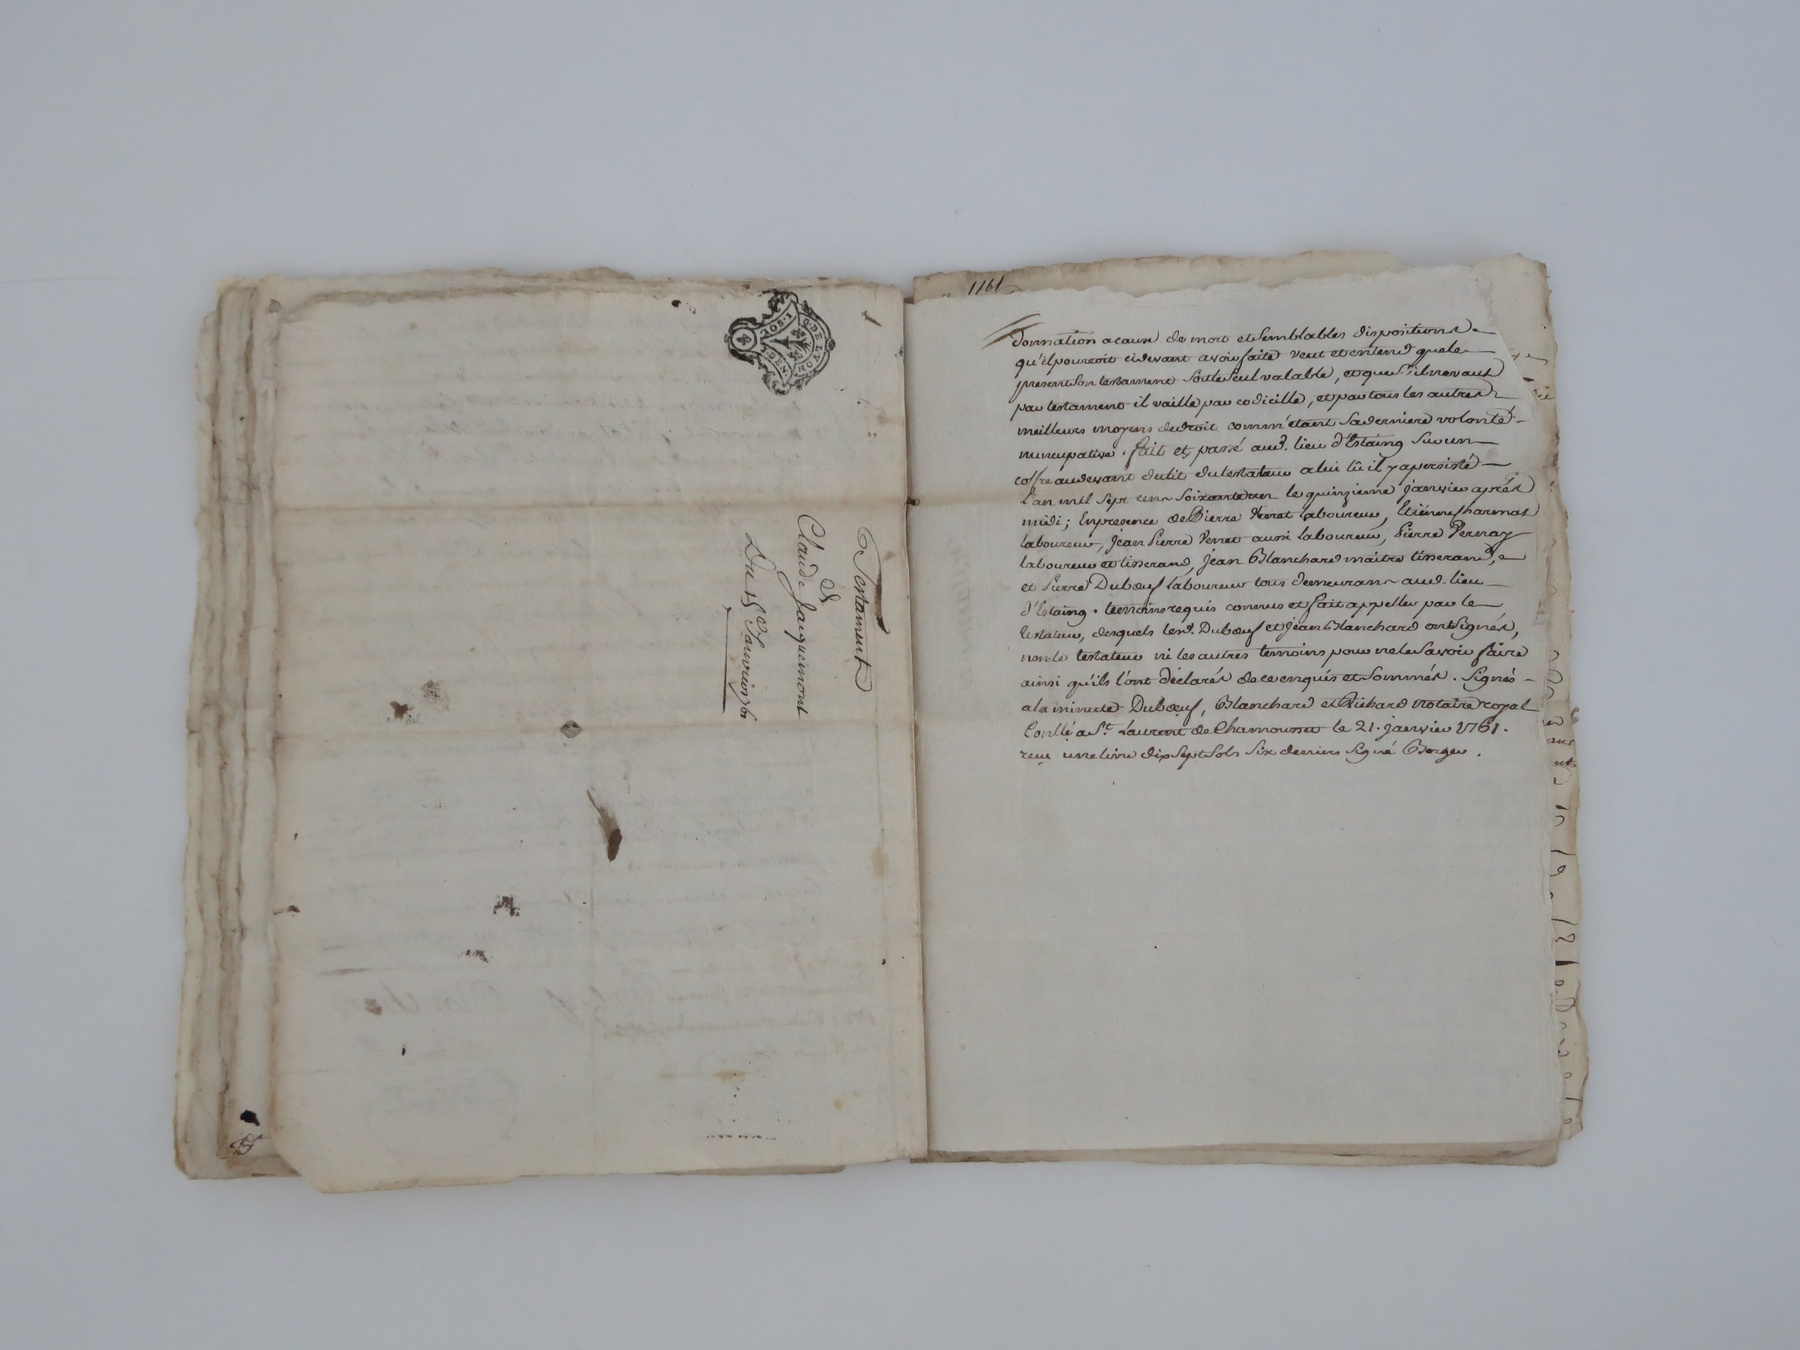 G. DE LYON
1. SOL
GEN
Testament
de
Claude Jacquemont
Du 15e Janvier 1761
1761
donnation a cause de mort et semblables dispositions
qu'il pourroit cidevant avoir faite veut et entend que le
present son testament soit le seul valable, et que s'il ne vaut
par testament il vaille par codicille, et par tous les autres
meilleurs moyens de droit comm'étant sa derniere volonté
nuncupative. fait et passé aud. lieu d'Estaing sur un
coffre audevant du lit du testateur a lui lû il y a persisté
L'an mil sept cens soixante un le quinzieme janvier aprés
midi; En presence de Pierre Verret laboureur, Etienne
laboureur, Jean Pierre Verret aussi laboureur, Pierre Vernay
laboureur et tisserand, Jean Blanchard maitre tisserand,
et Pierre Dubœuf laboureur tous demeurans aud. lieu
d'Estaing. temoins requis connus et fait appeller par le
testateur, desquels led. Dubœuf et Jean Blanchard ont signés,
non le testateur ni les autres temoins pour ne le savoir faire
ainsi qu'ils l'ont déclarés de ce enquis et sommés. Signés
a la minute Dubœuf, Blanchard et Richard notaire royal
Conllé a St. Laurent de Chamousset le 21. janvier 1761.
reçu une livre dix sept sols six deniers signé